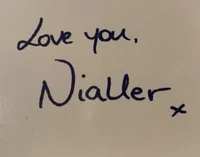 Love you,
Nialler x